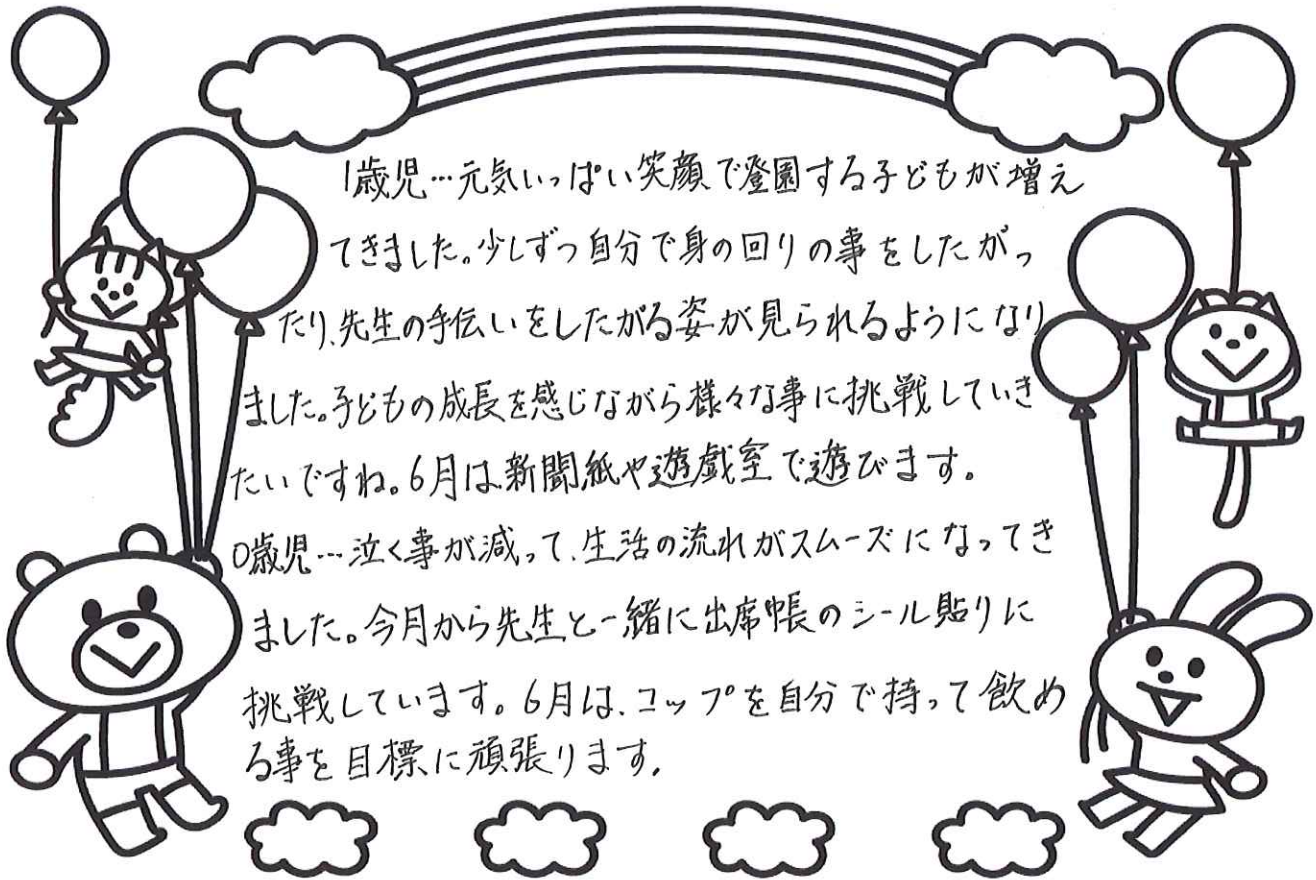 1歳児…元気いっぱい笑顔で登園する子どもが増え
てきました。少しずつ自分で身の回りの事をしたがっ
たり、先生の手伝いをしたがる姿が見られるようになり
ました。子どもの成長を感じながら様々な事に挑戦していき
たいですね。6月は、新聞紙や遊戯室で遊びます。
0歳児…泣く事が減って、生活の流れがスムーズになってき
ました。今月から先生と一緒に出席帳のシール貼りに
挑戦しています。6月は、コップを自分で持って飲め
る事を目標に頑張ります。